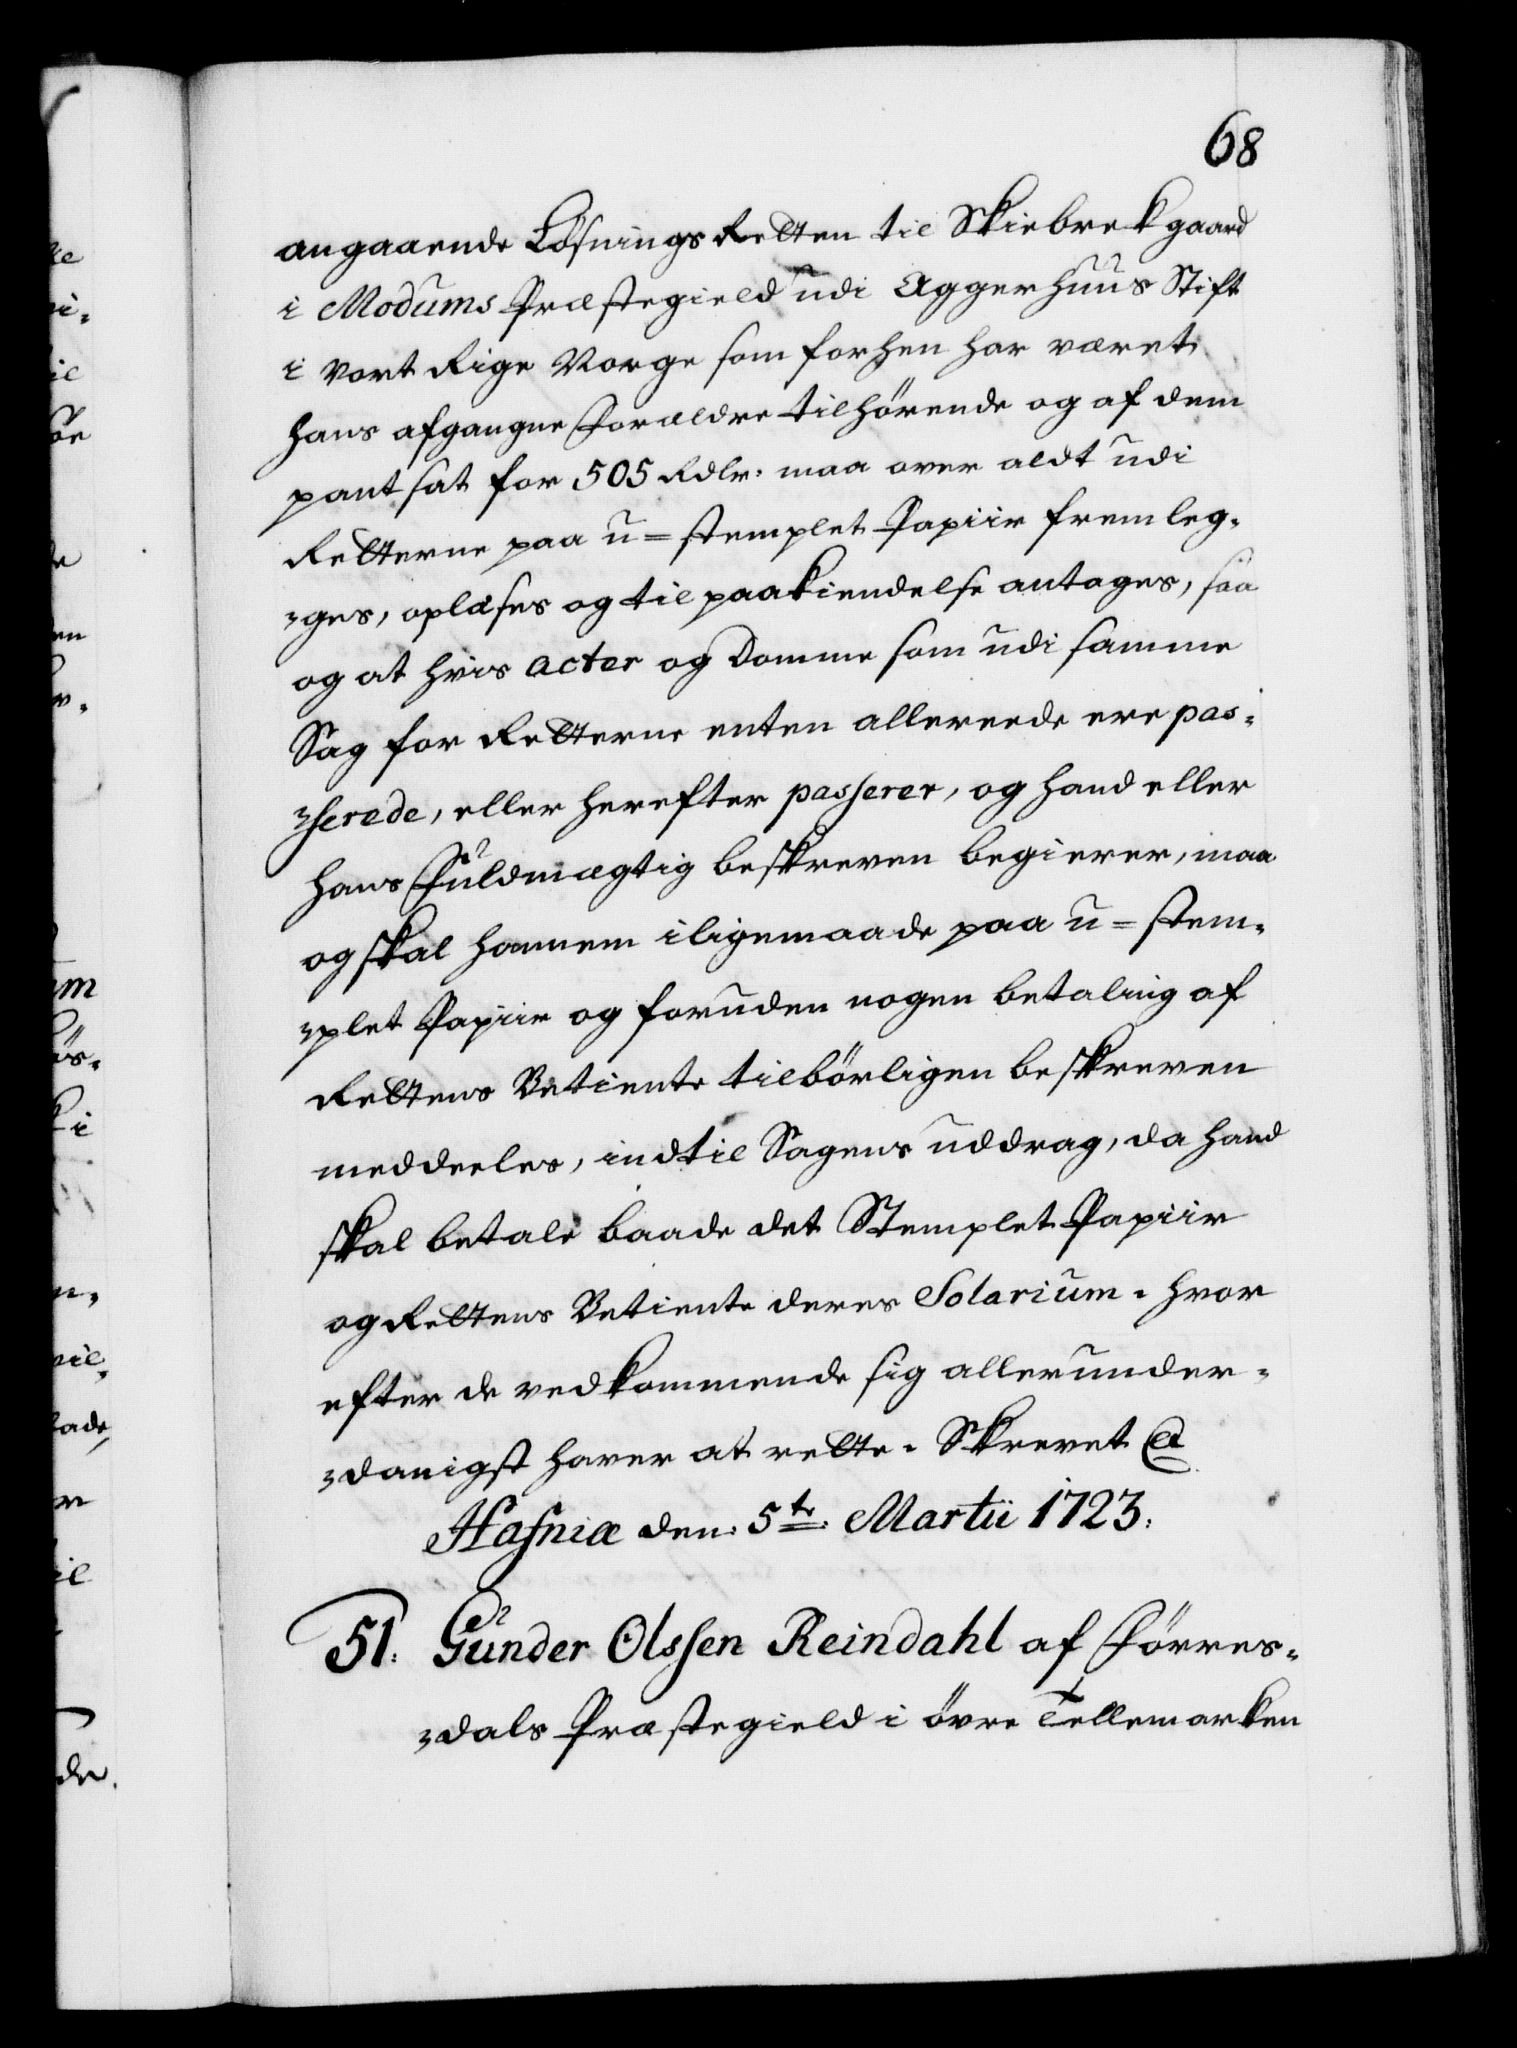 68
angaaende Løsnings Retten til Skiebrek gaard
i Modums Præstegield udi Aggerhuus Stift
i vort Rige Norge som forhen har været
hans afgangne Forældre tilhörende og af dem
pantsat for 505 Rdlr: maa over aldt udi
Retterne paa u=stemplet Papiir fremleg-
-ges, oplæses og til paakiendelse antages, saa
og at hvis acter og Domme som udi samme
Sag for Retterne enten allereede ere pas-
-serede, eller herefter passerer, og hand eller
hans Fuldmægtig beskreven begierer, maa
og skal hannem iligemaade paa u=stem-
-plet Papiir og foruden nogen betaling af
Rettens Betiente tilbörligen beskreven
meddeeles, indtil Sagens uddrag, da hand
skal betale baade det Stemplet Papiir
og Rettens Betiente deres Solarium. hvor
efter de vedkommende sig allerunder-
-danigst haver at rette. Skrevet @
Hafniæ den: 5te: Martii 1723:
51: Gunder Olssen Reindahl af Jörres-
-dals Præstegield i övre Tellemarken